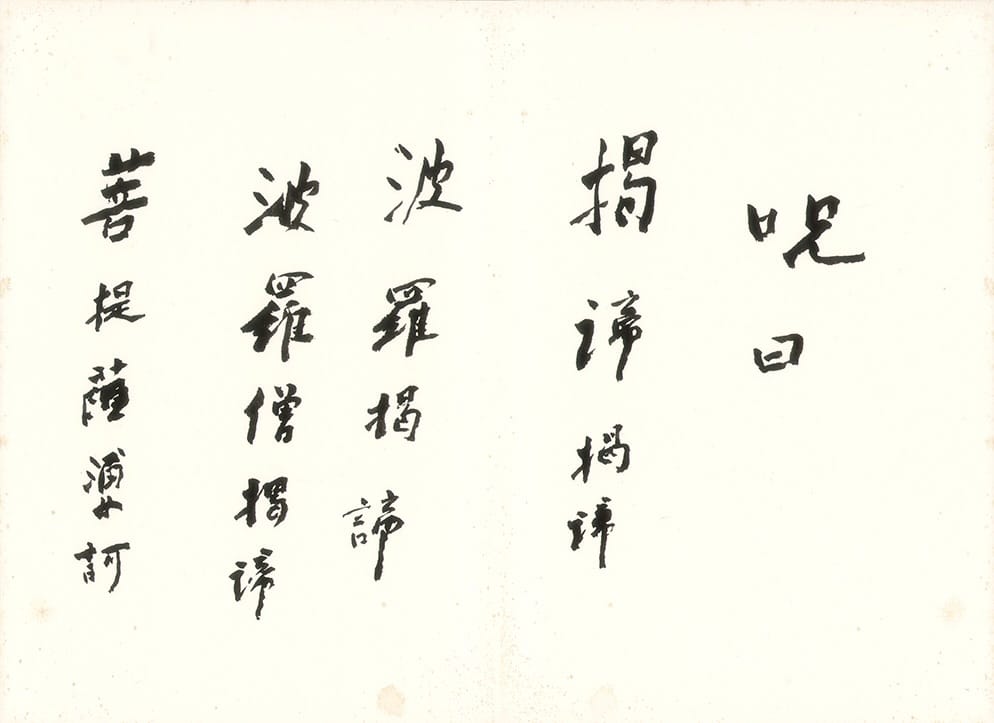 呪曰
揭諦揭諦
波羅揭諦
波羅僧揭諦
菩提薩婆訶